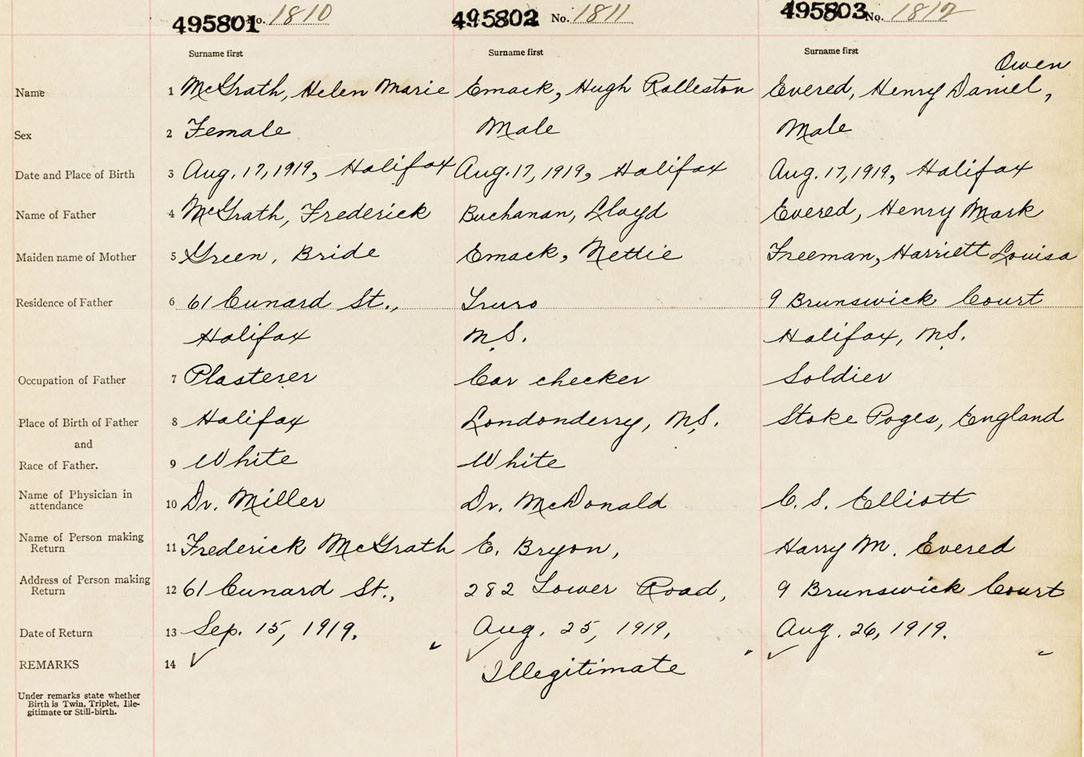 495801 No. 1810 495802 No. 1811 495803 No. 1812
Surname first Surname first Surname first
Owen
Name 1 McGrath, Helen Marie Emack, Hugh Ralleston Evered, Henry Daniel,
Sex 2 Female Male Male
Date and Place of Birth 3 Aug. 17, 1919, Halifax Aug. 17, 1919, Halifax Aug. 17, 1919, Halifax
Name of Father 4 McGrath, Frederick Buchanan, Lloyd Evered, Henry Mark
Maiden name of Mother 5 Green, Bride Emack, Nettie Freeman, Harriett Louisa
Residence of Father 6 61 Cunard St., Truro 9 Brunswick Court
Halifax N.S. Halifax, N.S.
Occupation of Father 7 Plasterer Car checker Soldier
Place of Birth of Father 8 Halifax Londonderry, N.S. Stoke Poges, England
and
Race of Father. 9 White White
Name of Physician in
attendance 10 Dr. Miller Dr. McDonald C. S. Elliott
Name of Person making
Return 11 Frederick McGrath E. Bryon, Harry M. Evered
Address of Person making
Return 12 61 Cunard St., 282 Lower Road, 9 Brunswick Court
Date of Return 13 Sep. 15, 1919. Aug. 25, 1919, Aug. 26, 1919.
REMARKS 14 Illegitimate
Under remarks state whether
Birth is Twin, Triplet, Ille-
gitimate or Still-birth.